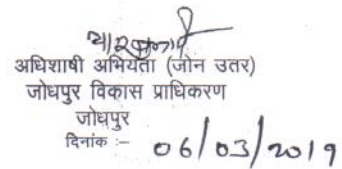 अधिशाषी अभियंता (जोन उतर)
जोधपुर विकास प्राधिकरण
जोधपुर
दिनांक :– 06/03/2019